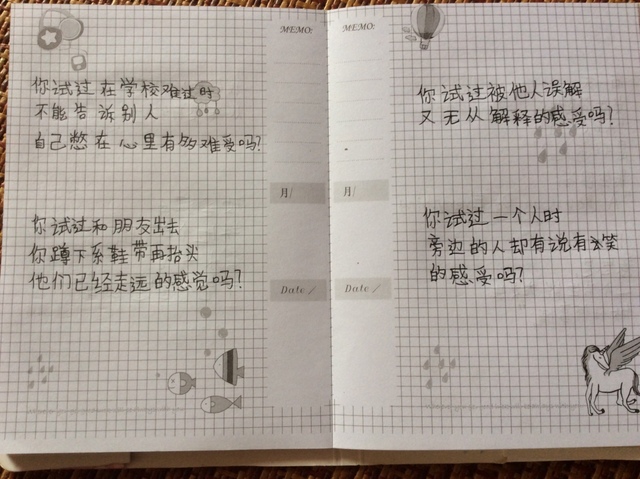 你试过在学校难过时
不能告诉别人
自己憋在心里有够难受吗?
你试过和朋友出去
你蹲下系鞋带再抬头
他们已经走远的感觉吗?
MEMO:
月/
Date /
MEMO:
月/
Date /
你试过被他人误解
又无从解释的感受吗?
你试过一个人时
旁边的人却有说有笑
的感受吗?